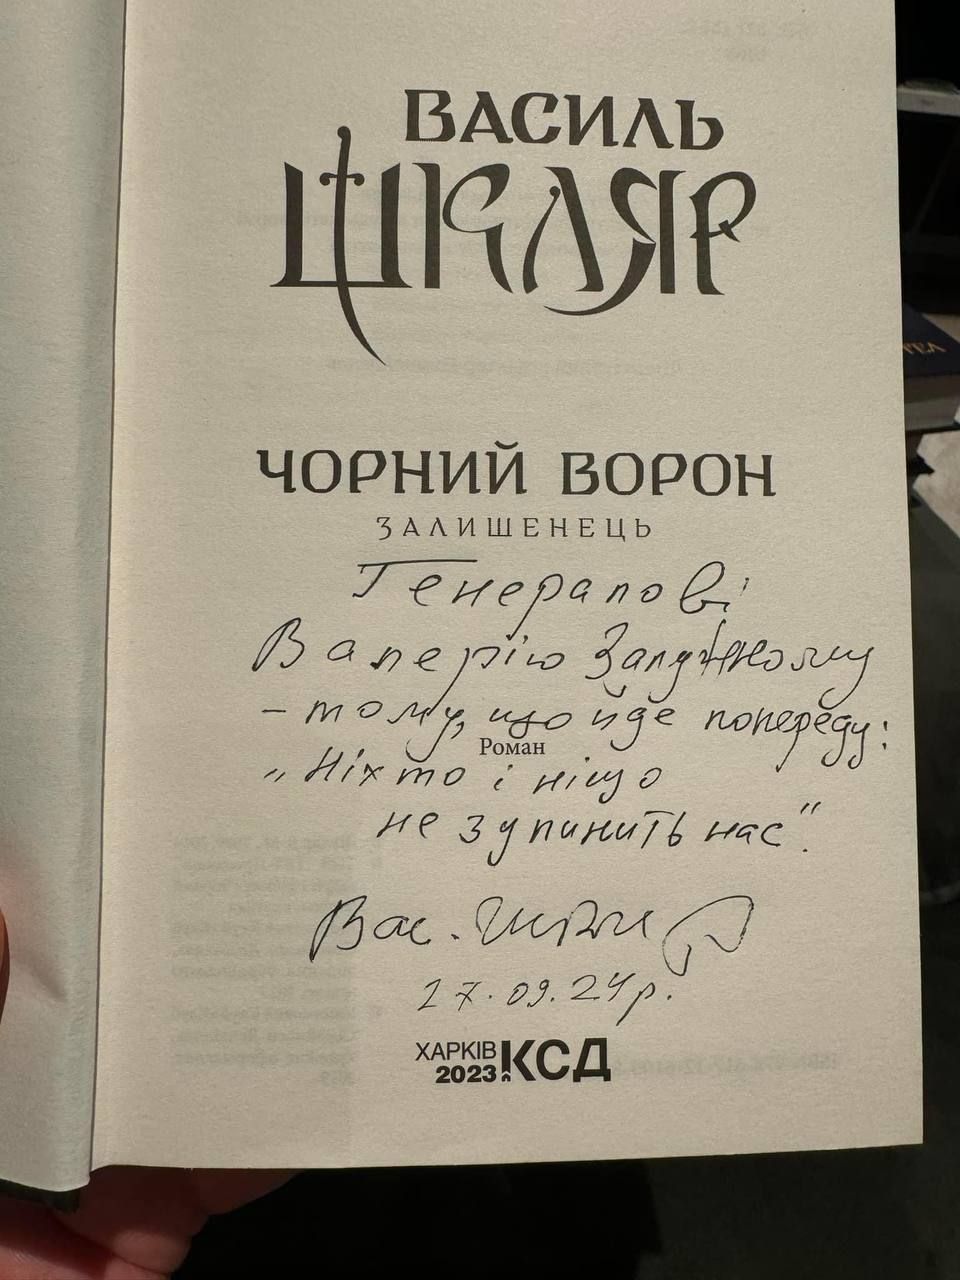 ВАСИЛЬ
ШКЛЯР
ЧОРНИЙ ВОРОН
ЗАЛИШЕНЕЦЬ
Генералові
Валерію Залужному
– тому, що йде попереду:
Роман
„Ніхто і ніщо
не зупинить нас".
Вас. Шкляр
27.09.24р.
ХАРКІВ КСД
2023